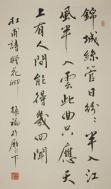 錦城絲管日紛〻半入江
風半入雲此曲只應天
上有人間能得幾回聞
杜甫詩贈花卿